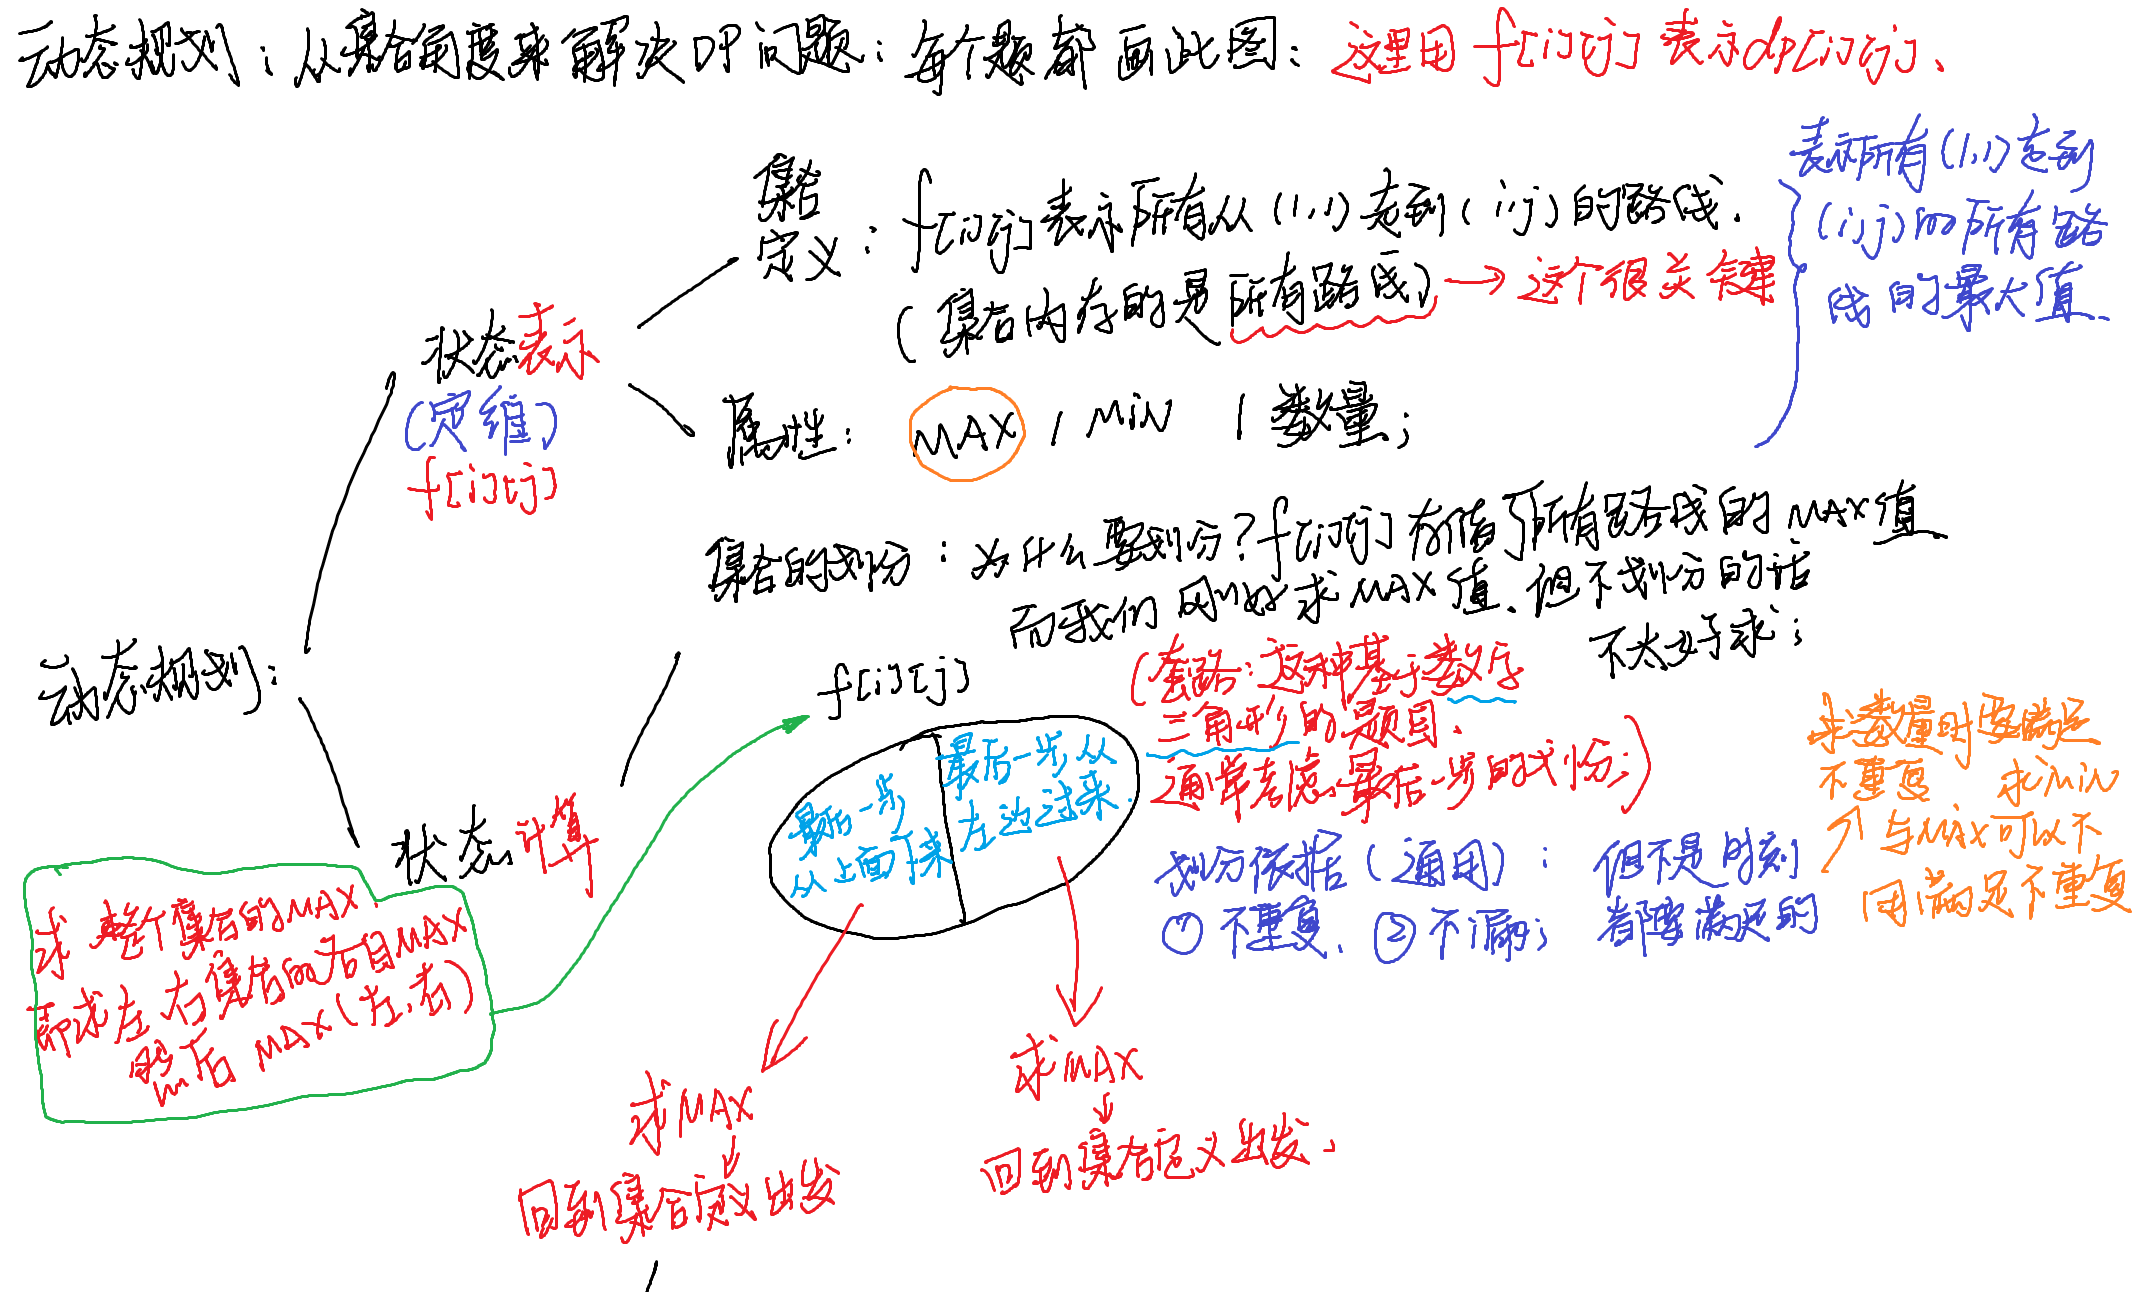 动态规划：从集合角度来解决DP问题：每个题都画此图：这里用f[i][j]表示dp[i][j]、
集合
定义：f[i][j]表示所有从(1,1)走到(i,j)的路线.
(集合内存的是所有路线)→这个很关键
表示所有(1,1)走到
(i,j)的所有路
线的最大值.
状态表示
(定维)
f[i][j]
属性：MAX / MiN / 数量；
集合的划分：为什么要划分？f[i][j]存储了所有路线的MAX值
而我们刚好求MAX值、但不划分的话
不太好求；
动态规划：
状态计算
f[i][j]
最后一步
从上面下来
最后一步从
左边过来.
(套路：这种基于数字
三角形的题目、
通常考虑最后一步的划份；)
划分依据(通用)：但不是时刻
①不重复、②不漏；都要满足的
求数量时要满足
不重复 求MiN
与MAX可以不
用满足不重复
求整个集合的MAX.
即求左、右集合的各自MAX
然后MAX(左,右)
求MAX
回到集合定义出发
求MAX
回到集合定义出发、